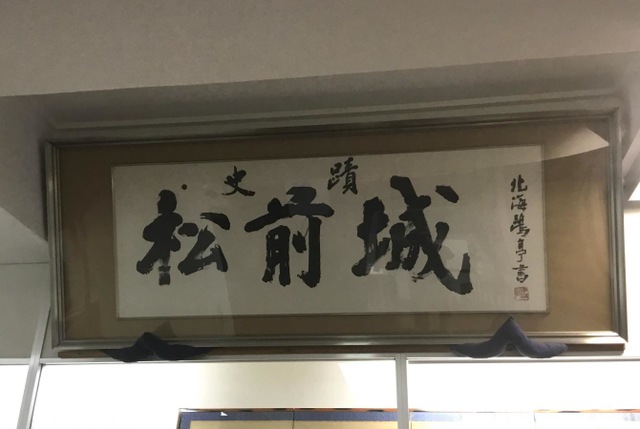 史蹟
松前城
北海鷗亭書